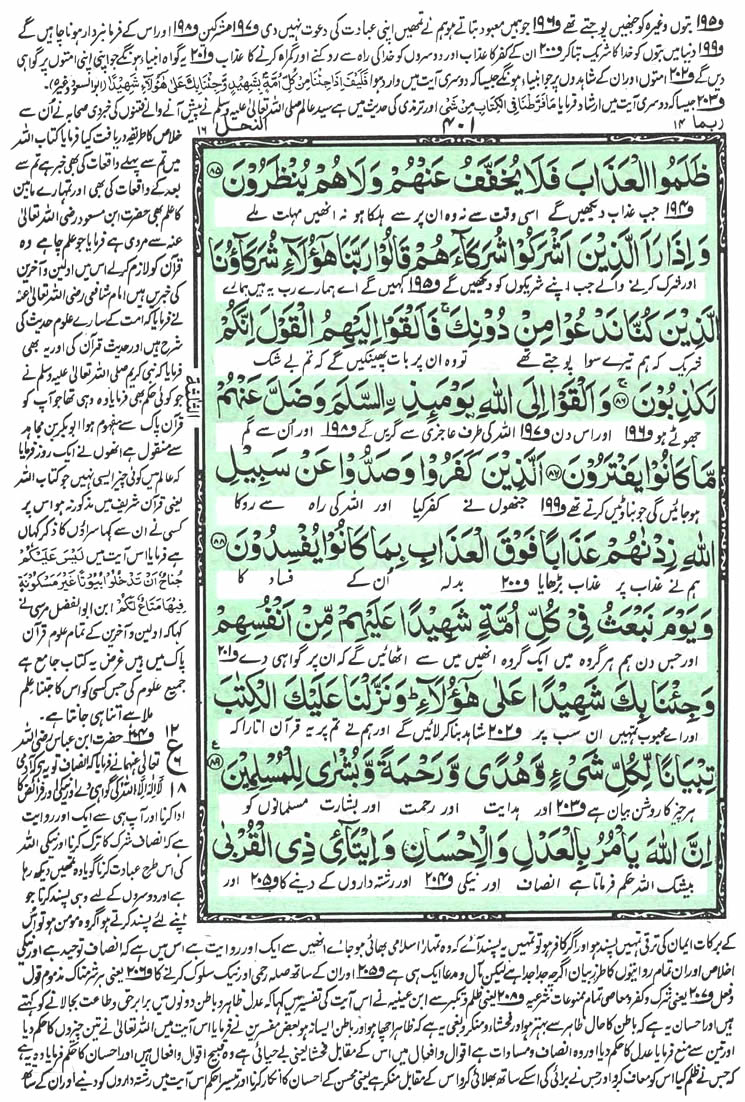 و۱۹۵ بتوں وغیرہ کو جنھیں پوجتے تھے و۱۹۶ جو ہمیں معبود بتاتے ہو ہم نے تمھیں اپنی عبادت کی دعوت نہیں دی و۱۹۷ مشرکین و۱۹۸ اور اس کے فرمانبردار ہونا چاہیں گے
و۱۹۹ دنیا میں بتوں کو خدا کا شریک بتا کر و۲۰۰ ان کے کفر کا عذاب اور دوسروں کو خدا کی راہ سے روکنے اور گمراہ کرنے کا عذاب و۲۰۱ یہ گواہ انبیاء ہونگے جو اپنی اپنی امتوں پر گواہی
دیں گے و۲۰۲ امتوں اور ان کے شاہدوں پر جو انبیاء ہونگے جیسا کہ دوسری آیت میں وارد ہوا فَكَيْفَ اِذَا جِئْنَا مِنْ كُلِّ اُمَّةٍ بِشَهِيْدٍ وَّجِئْنَا بِكَ عَلٰى هٰۤؤُلَآءِ شَهِيْدًا (ابو السعود وغیرہ)۔
و۲۰۳ جیسا کہ دوسری آیت میں ارشاد فرمایا مَا فَرَّطْنَا فِي الْكِتَابِ مِنْ شَيْءٍ اور ترمذی کی حدیث میں ہے سید عالم صلی اللہ تعالیٰ علیہ وسلم نے پیش آنے والے فتنوں کی خبر دی صحابہ نے اُن سے
ربما ۱۴
۴۰۱
النحل ۱۶
ظَلَمُوا الْعَذَابَ فَلَا يُخَفَّفُ عَنْهُمْ وَلَا هُمْ يُنْظَرُوْنَ ۸۵
و۱۹۴ جب عذاب دیکھیں گے اسی وقت سے نہ وہ ان پر سے ہلکا ہو نہ انھیں مہلت ملے
وَاِذَا رَاَ الَّذِيْنَ اَشْرَكُوْا شُرَكَآءَهُمْ قَالُوْا رَبَّنَا هٰۤؤُلَآءِ شُرَكَآؤُنَا
اور شرک کرنے والے جب اپنے شریکوں کو دیکھیں گے و۱۹۵ کہیں گے اے ہمارے رب یہ ہیں ہمارے
الَّذِيْنَ كُنَّا نَدْعُوْا مِنْ دُوْنِكَ ۚ فَاَلْقَوْا اِلَيْهِمُ الْقَوْلَ اِنَّكُمْ
شریک کہ ہم تیرے سوا پوجتے تھے تو وہ ان پر بات پھینکیں گے کہ تم بے شک
لَكٰذِبُوْنَ ۚ ۸۶ وَاَلْقَوْا اِلَى اللّٰهِ يَوْمَىِٕذِ ِۨالسَّلَمَ وَضَلَّ عَنْهُمْ
جھوٹے ہو و۱۹۶ اور اس دن و۱۹۷ اللہ کی طرف عاجزی سے گریں گے و۱۹۸ اور اُن سے گم
مَّا كَانُوْا يَفْتَرُوْنَ ۸۷ اَلَّذِيْنَ كَفَرُوْا وَصَدُّوْا عَنْ سَبِيْلِ
ہو جائیں گی جو بناوٹیں کرتے تھے و۱۹۹ جنھوں نے کفر کیا اور اللہ کی راہ سے روکا
اللّٰهِ زِدْنٰهُمْ عَذَابًا فَوْقَ الْعَذَابِ بِمَا كَانُوْا يُفْسِدُوْنَ ۸۸
ہم نے عذاب پر عذاب بڑھایا و۲۰۰ بدلہ اُن کے فساد کا
وَيَوْمَ نَبْعَثُ فِيْ كُلِّ اُمَّةٍ شَهِيْدًا عَلَيْهِمْ مِّنْ اَنْفُسِهِمْ
اور جس دن ہم ہر گروہ میں ایک گروہ انھیں میں سے اٹھائیں گے کہ ان پر گواہی دے و۲۰۱
وَجِئْنَا بِكَ شَهِيْدًا عَلٰى هٰۤؤُلَآءِ ؕ وَنَزَّلْنَا عَلَيْكَ الْكِتٰبَ
اور اے محبوب تمہیں ان سب پر و۲۰۲ شاہد بنا کر لائیں گے اور ہم نے تم پر یہ قرآن اتارا کہ
تِبْيَانًا لِّكُلِّ شَيْءٍ وَّهُدًى وَّرَحْمَةً وَّبُشْرٰى لِلْمُسْلِمِيْنَ ۸۹
ہر چیز کا روشن بیان ہے و۲۰۳ اور ہدایت اور رحمت اور بشارت مسلمانوں کو
اِنَّ اللّٰهَ يَاْمُرُ بِالْعَدْلِ وَالْاِحْسَانِ وَاِيْتَآئِ ذِي الْقُرْبٰى
بیشک اللہ حکم فرماتا ہے انصاف اور نیکی و۲۰۴ اور رشتہ داروں کے دینے کا و۲۰۵ اور
خلاص کا طریقہ دریافت کیا فرمایا کتاب اللہ
میں تم سے پہلے واقعات کی بھی خبر ہے تم سے
بعد کے واقعات کی بھی اور تمہارے مابین
کا علم بھی حضرت ابن مسعود رضی اللہ تعالیٰ
عنہ سے مروی ہے فرمایا جو علم چاہے وہ
قرآن کو لازم کر لے اس میں اولین و آخرین
کی خبریں ہیں امام شافعی رضی اللہ تعالیٰ عنہ
نے فرمایا کہ امت کے سارے علوم حدیث کی
شرح ہیں اور حدیث قرآن کی اور یہ بھی
فرمایا کہ نبی کریم صلی اللہ تعالیٰ علیہ وسلم نے
جو کوئی حکم بھی فرمایا وہ وہی تھا جو آپ کو
قرآن پاک سے مفہوم ہوا ابوبکر بن مجاہد
سے منقول ہے انھوں نے ایک روز فرمایا
کہ عالم میں کوئی چیز ایسی نہیں جو کتاب اللہ
یعنی قرآن شریف میں مذکور نہ ہو اس پر
کسی نے ان سے کہا سراؤں کا ذکر کہاں
ہے فرمایا اس آیت میں لَيْسَ عَلَيْكُمْ
جُنَاحٌ اَنْ تَدْخُلُوْا بُيُوْتًا غَيْرَ مَسْكُوْنَةٍ
فِيْهَا مَتَاعٌ لَّكُمْ ابن ابو الفضل مرسی نے
کہا کہ اولین و آخرین کے تمام علوم قرآن
پاک میں ہیں غرض یہ کتاب جامع ہے
جمیع علوم کی جس کسی کو اس کا جتنا علم
ملا ہے اتنا ہی جانتا ہے۔
و۲۰۴ حضرت ابن عباس رضی اللہ
تعالیٰ عنہما نے فرمایا کہ انصاف تو یہ ہے کہ آدمی
لَا اِلٰهَ اِلَّا اللّٰهُ کی گواہی دے اور نیکی اور فرائض کا
ادا کرنا اور آپ ہی سے ایک اور روایت
ہے کہ انصاف شرک کا ترک کرنا اور نیکی اللہ
کی اس طرح عبادت کرنا گویا وہ تمھیں دیکھ رہا
ہے اور دوسروں کے لیے وہی پسند کرنا جو
اپنے لئے پسند کرتے ہو اگر وہ مومن ہو تو اس
۱۲
ع
۶
۱۸
کے برکات ایمان کی ترقی تمہیں پسند ہو اور اگر کافر ہو تو تمہیں یہ پسند آئے کہ وہ تمہارا اسلامی بھائی ہو جائے انھیں سے ایک اور روایت ہے اس میں ہے کہ انصاف توحید ہے اور نیکی
اخلاص اور ان تمام روایتوں کا طرزِ بیان اگرچہ جدا جدا ہے لیکن مآل و مدعا ایک ہی ہے و۲۰۵ اور ان کے ساتھ صلہ رحمی اور نیک سلوک کرنے کا و۲۰۶ یعنی ہر شرمناک مذموم قول
و فعل و۲۰۷ یعنی شرک و کفر و معاصی تمام ممنوعات شرعیہ و۲۰۸ یعنی ظلم و تکبر سے ابن عیینہ نے اس آیت کی تفسیر میں کہا کہ عدل ظاہر و باطن دونوں میں برابر حق و طاعت بجا لانے کو کہتے
ہیں اور احسان یہ ہے کہ باطن کا حال ظاہر سے بہتر ہو اور فحشاء و منکر و بغی یہ ہے کہ ظاہر اچھا ہو اور باطن ایسا نہ ہو بعض مفسرین نے فرمایا اس آیت میں اللہ تعالیٰ نے تین چیزوں کا حکم دیا
اور تین سے منع فرمایا عدل کا حکم دیا اور وہ انصاف و مساوات ہے اقوال و افعال میں اس کے مقابل فحشا یعنی بے حیائی ہے وہ قبیح اقوال و افعال ہیں اور احسان کا حکم فرمایا وہ یہ ہے
کہ جس نے ظلم کیا اس کو معاف کرو اور جس نے برائی کی اس کے ساتھ بھلائی کرو اس کے مقابل منکر ہے یعنی محسن کے احسان کا انکار کرنا اور تیسرا حکم اس آیت میں رشتہ داروں کو دینے اور ان کے ساتھ